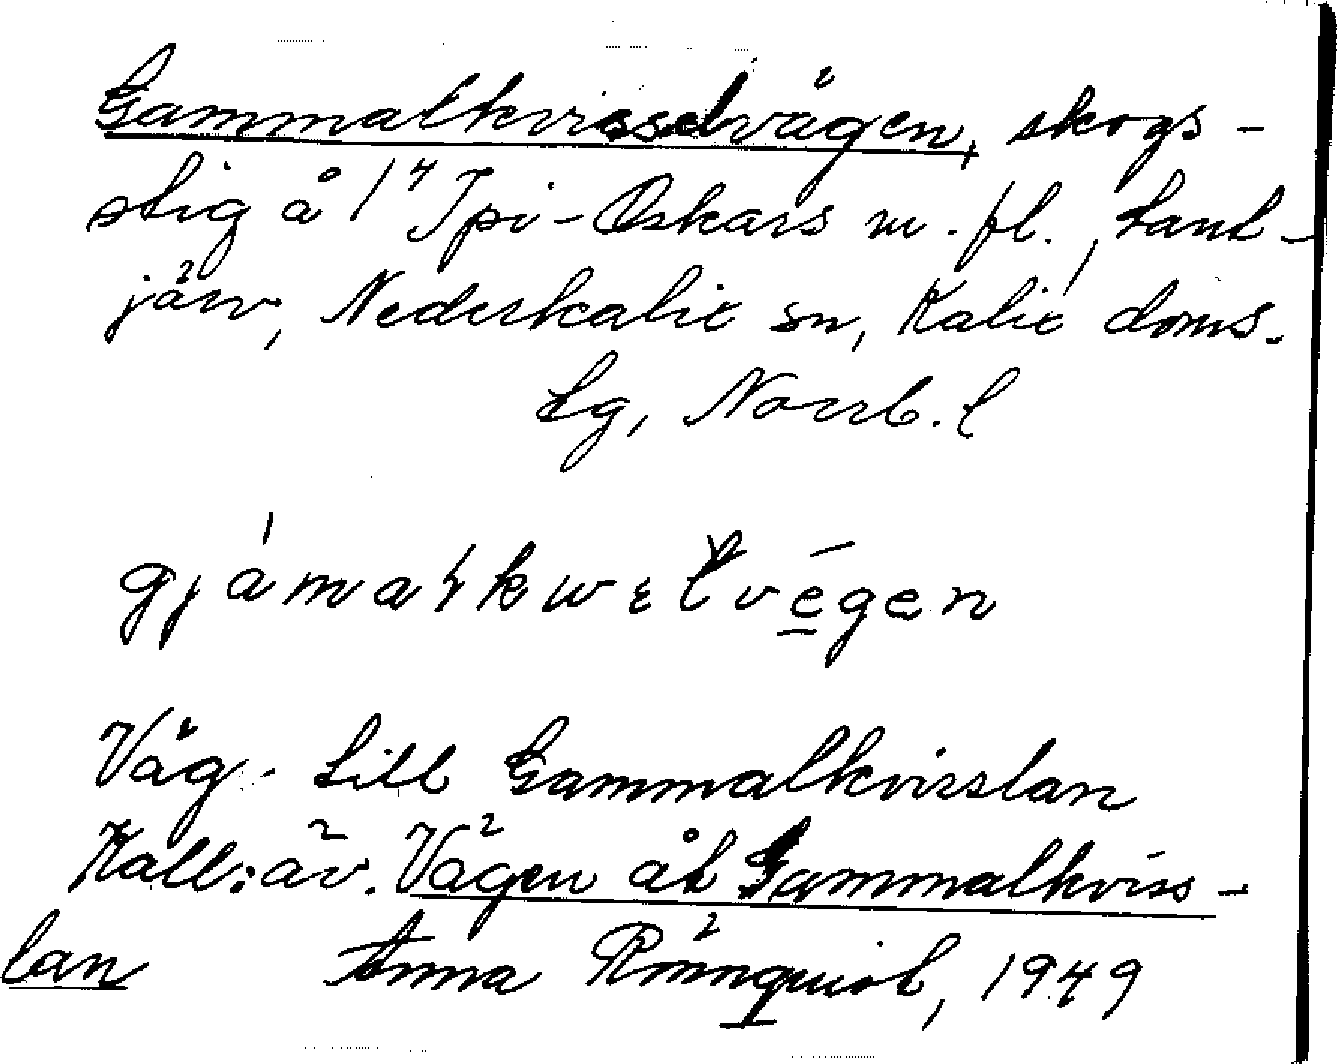 Gammalkvisselvägen, skogs-
stig å 1⁴ Ipi-Oskars m. fl., Lant-
järv, Nederkalix sn, Kalix doms.
lg, Norrb. l
Väg till Gammalkvisslan
Kall: äv. Vägen åt Gammalkviss-
lan Anna Rönnquist, 1949